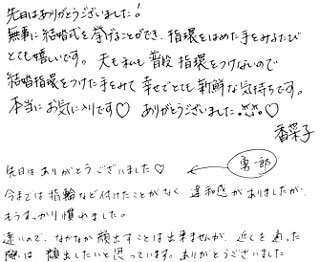 先日はありがとうございました!
無事に結婚式を挙げることができ、指環をはめた手をみるたび
とても嬉しいです。夫も私も普段指環をつけないので
結婚指環をつけた手をみて幸せでとても新鮮な気持ちです。
本当にお気に入りです♡ ありがとうございました
香菜子
先日はありがとうございました♡
勇一郎
今までは指輪など付けたことがなく違和感がありましたが、
もうすっかり慣れました。
遠いので、なかなか顔出すことは出来ませんが、近くを通った
際は顔出したいと思っています。ありがとうございました